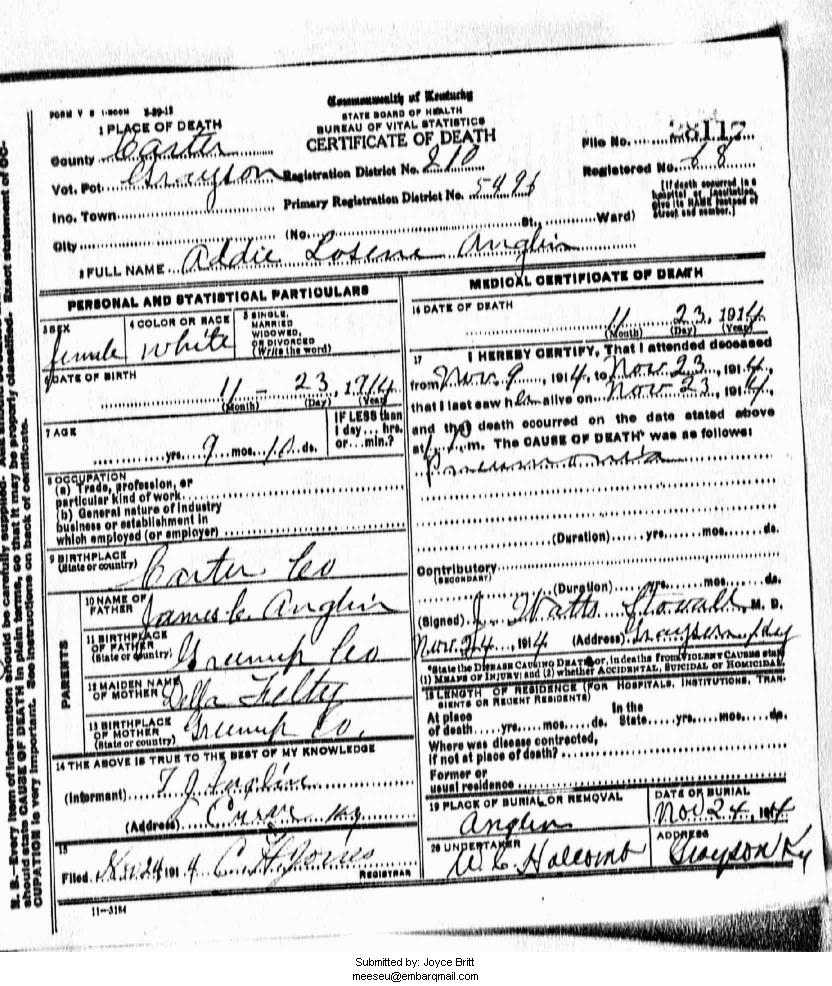 FORM V S 1-500M 8-29-13
Commonwealth of Kentucky
STATE BOARD OF HEALTH
BUREAU OF VITAL STATISTICS
CERTIFICATE OF DEATH
1 PLACE OF DEATH
County Carter
Vot. Pct. Grayson
Inc. Town
City
Registration District No. 210
Primary Registration District No. 5496
(No. St., Ward)
File No. 28117
Registered No. 68
[If death occurred in a
hospital or institution,
give its NAME instead of
street and number.]
2 FULL NAME Addie Losene Anglin
PERSONAL AND STATISTICAL PARTICULARS
3 SEX
female
4 COLOR OR RACE
white
5 SINGLE,
MARRIED
WIDOWED,
OR DIVORCED
(Write the word)
6 DATE OF BIRTH
11 - 23, 1914
(Month) (Day) (Year)
7 AGE
yrs. 9 mos. 10 ds.
IF LESS than
1 day... hrs.
or... min.?
8 OCCUPATION
(a) Trade, profession, or
particular kind of work
(b) General nature of industry
business or establishment in
which employed (or employer)
9 BIRTHPLACE
(State or country) Carter Co
PARENTS
10 NAME OF
FATHER James C. Anglin
11 BIRTHPLACE
OF FATHER
(State or country) Greenup Co
12 MAIDEN NAME
OF MOTHER Della Felty
13 BIRTHPLACE
OF MOTHER
(State or country) Greenup Co.
14 THE ABOVE IS TRUE TO THE BEST OF MY KNOWLEDGE
(Informant) T J Anglin
(Address) Ky
15
Filed Nov 24 1914 C H Jones
REGISTRAR
11-3184
MEDICAL CERTIFICATE OF DEATH
16 DATE OF DEATH
11 23, 1914
(Month) (Day) (Year)
17 I HEREBY CERTIFY, That I attended deceased
from Nov. 9, 1914, to Nov 23, 1914,
that I last saw h alive on Nov 23, 1914,
and that death occurred on the date stated above
at m. The CAUSE OF DEATH* was as follows:
Pneumonia
(Duration) yrs. mos. ds.
Contributory
(SECONDARY)
(Duration) yrs. mos. ds.
(Signed) J. Watts Stovall, M. D.
Nov. 24, 1914 (Address) Grayson, Ky
*State the DISEASE CAUSING DEATH, or, in deaths from VIOLENT CAUSES state
(1) MEANS OF INJURY; and (2) whether ACCIDENTAL, SUICIDAL or HOMICIDAL.
18 LENGTH OF RESIDENCE (FOR HOSPITALS, INSTITUTIONS, TRAN-
SIENTS OR RECENT RESIDENTS)
At place
of death yrs. mos. ds.
In the
State yrs. mos. ds.
Where was disease contracted,
if not at place of death?
Former or
usual residence
19 PLACE OF BURIAL OR REMOVAL
Anglin
DATE OF BURIAL
Nov 24, 1914
20 UNDERTAKER
W. C. Holcomb
ADDRESS
Grayson Ky
N. B.—Every item of information should be carefully supplied. Exact statement of OC-
should state CAUSE OF DEATH in plain terms, so that it may be properly classified.
CUPATION is very important. See instructions on back of certificate.
Submitted by: Joyce Britt
meeseu@embarqmail.com